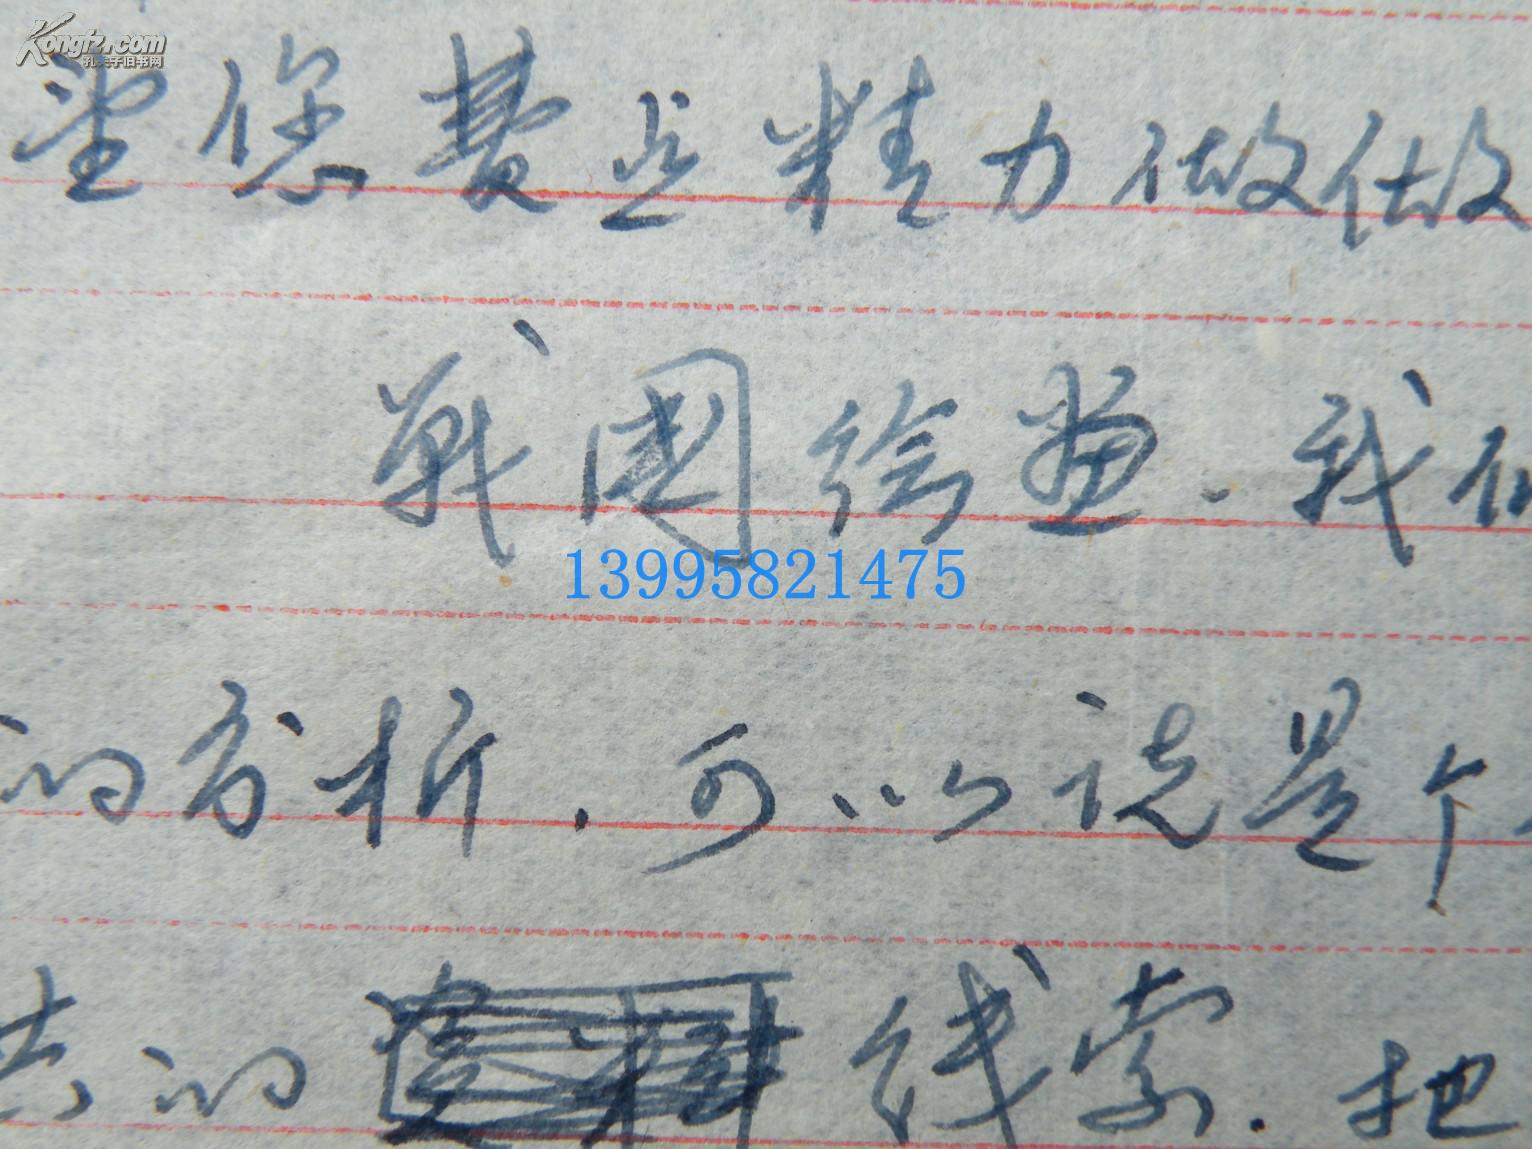 Kongfz.com
孔夫子旧书网
望您费些精力做做
战国绘画、我们
13995821475
的分析.可以说是个
共的 线索.把